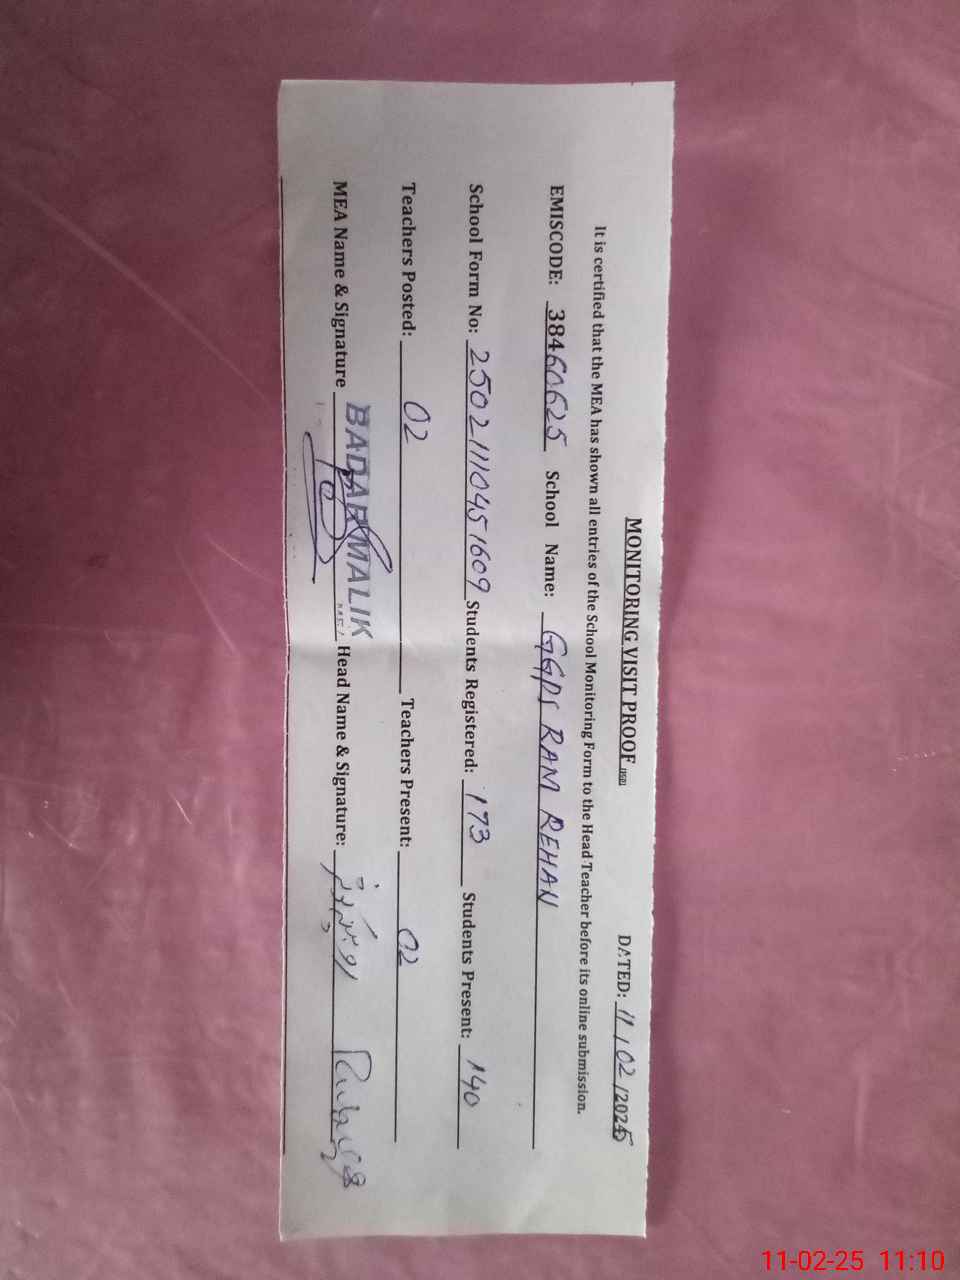 MONITORING VISIT PROOF (HSD)
DATED: 11/02/2025
It is certified that the MEA has shown all entries of the School Monitoring Form to the Head Teacher before its online submission.
EMISCODE: 38460625 School Name: GGPS RAM REHAN
School Form No: 25021110451609 Students Registered: 173 Students Present: 140
Teachers Posted: 02 Teachers Present: 02
MEA Name & Signature BADAR MALIK Head Name & Signature:
11-02-25 11:10